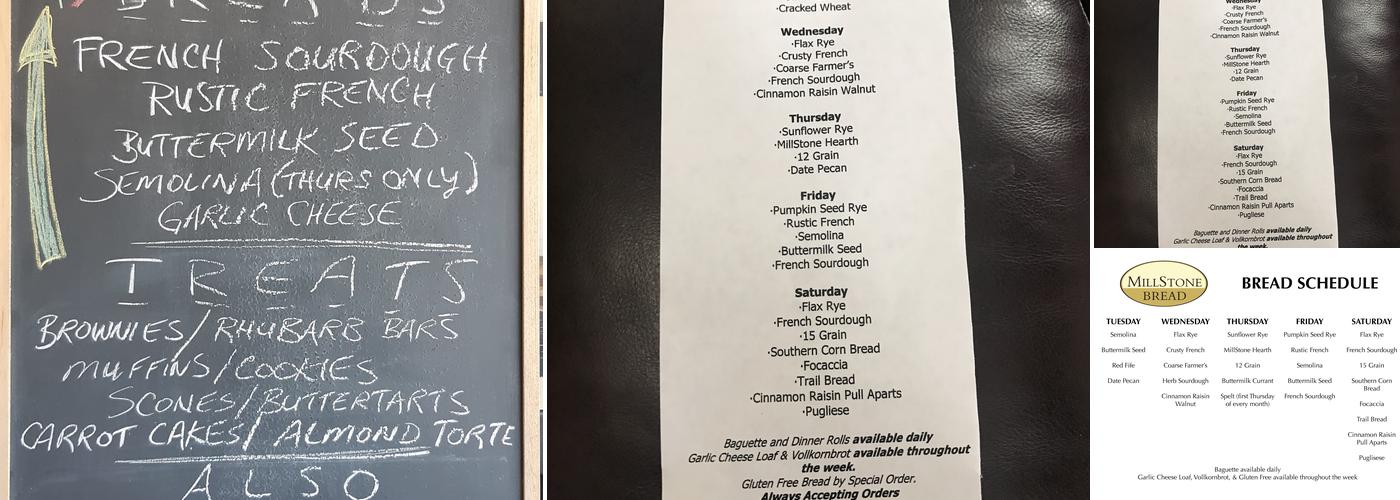 BREADS
FRENCH SOURDOUGH
RUSTIC FRENCH
BUTTERMILK SEED
SEMOLINA (THURS ONLY)
GARLIC CHEESE
TREATS
BROWNIES/RHUBARB BARS
MUFFINS/COOKIES
SCONES/BUTTERTARTS
CARROT CAKES/ ALMOND TORTE
ALSO
·Cracked Wheat
Wednesday
·Flax Rye
·Crusty French
·Coarse Farmer's
·French Sourdough
·Cinnamon Raisin Walnut
Thursday
·Sunflower Rye
·MillStone Hearth
·12 Grain
·Date Pecan
Friday
·Pumpkin Seed Rye
·Rustic French
·Semolina
·Buttermilk Seed
·French Sourdough
Saturday
·Flax Rye
·French Sourdough
·15 Grain
·Southern Corn Bread
·Focaccia
·Trail Bread
·Cinnamon Raisin Pull Aparts
·Pugliese
Baguette and Dinner Rolls available daily
Garlic Cheese Loaf & Vollkornbrot available throughout
the week.
Gluten Free Bread by Special Order.
Always Accepting Orders
Wednesday
·Flax Rye
·Crusty French
·Coarse Farmer's
·French Sourdough
·Cinnamon Raisin Walnut
Thursday
·Sunflower Rye
·MillStone Hearth
·12 Grain
·Date Pecan
Friday
·Pumpkin Seed Rye
·Rustic French
·Semolina
·Buttermilk Seed
·French Sourdough
Saturday
·Flax Rye
·French Sourdough
·15 Grain
·Southern Corn Bread
·Focaccia
·Trail Bread
·Cinnamon Raisin Pull Aparts
·Pugliese
Baguette and Dinner Rolls available daily
Garlic Cheese Loaf & Vollkornbrot available throughout
the week.
MILLSTONE
BREAD
BREAD SCHEDULE
TUESDAY
Semolina
Buttermilk Seed
Red Fife
Date Pecan
WEDNESDAY
Flax Rye
Crusty French
Coarse Farmer's
Herb Sourdough
Cinnamon Raisin
Walnut
THURSDAY
Sunflower Rye
MillStone Hearth
12 Grain
Buttermilk Currant
Spelt (first Thursday
of every month)
FRIDAY
Pumpkin Seed Rye
Rustic French
Semolina
Buttermilk Seed
French Sourdough
SATURDAY
Flax Rye
French Sourdough
15 Grain
Southern Corn
Bread
Focaccia
Trail Bread
Cinnamon Raisin
Pull Aparts
Pugliesse
Baguette available daily
Garlic Cheese Loaf, Vollkornbrot, & Gluten Free available throughout the week